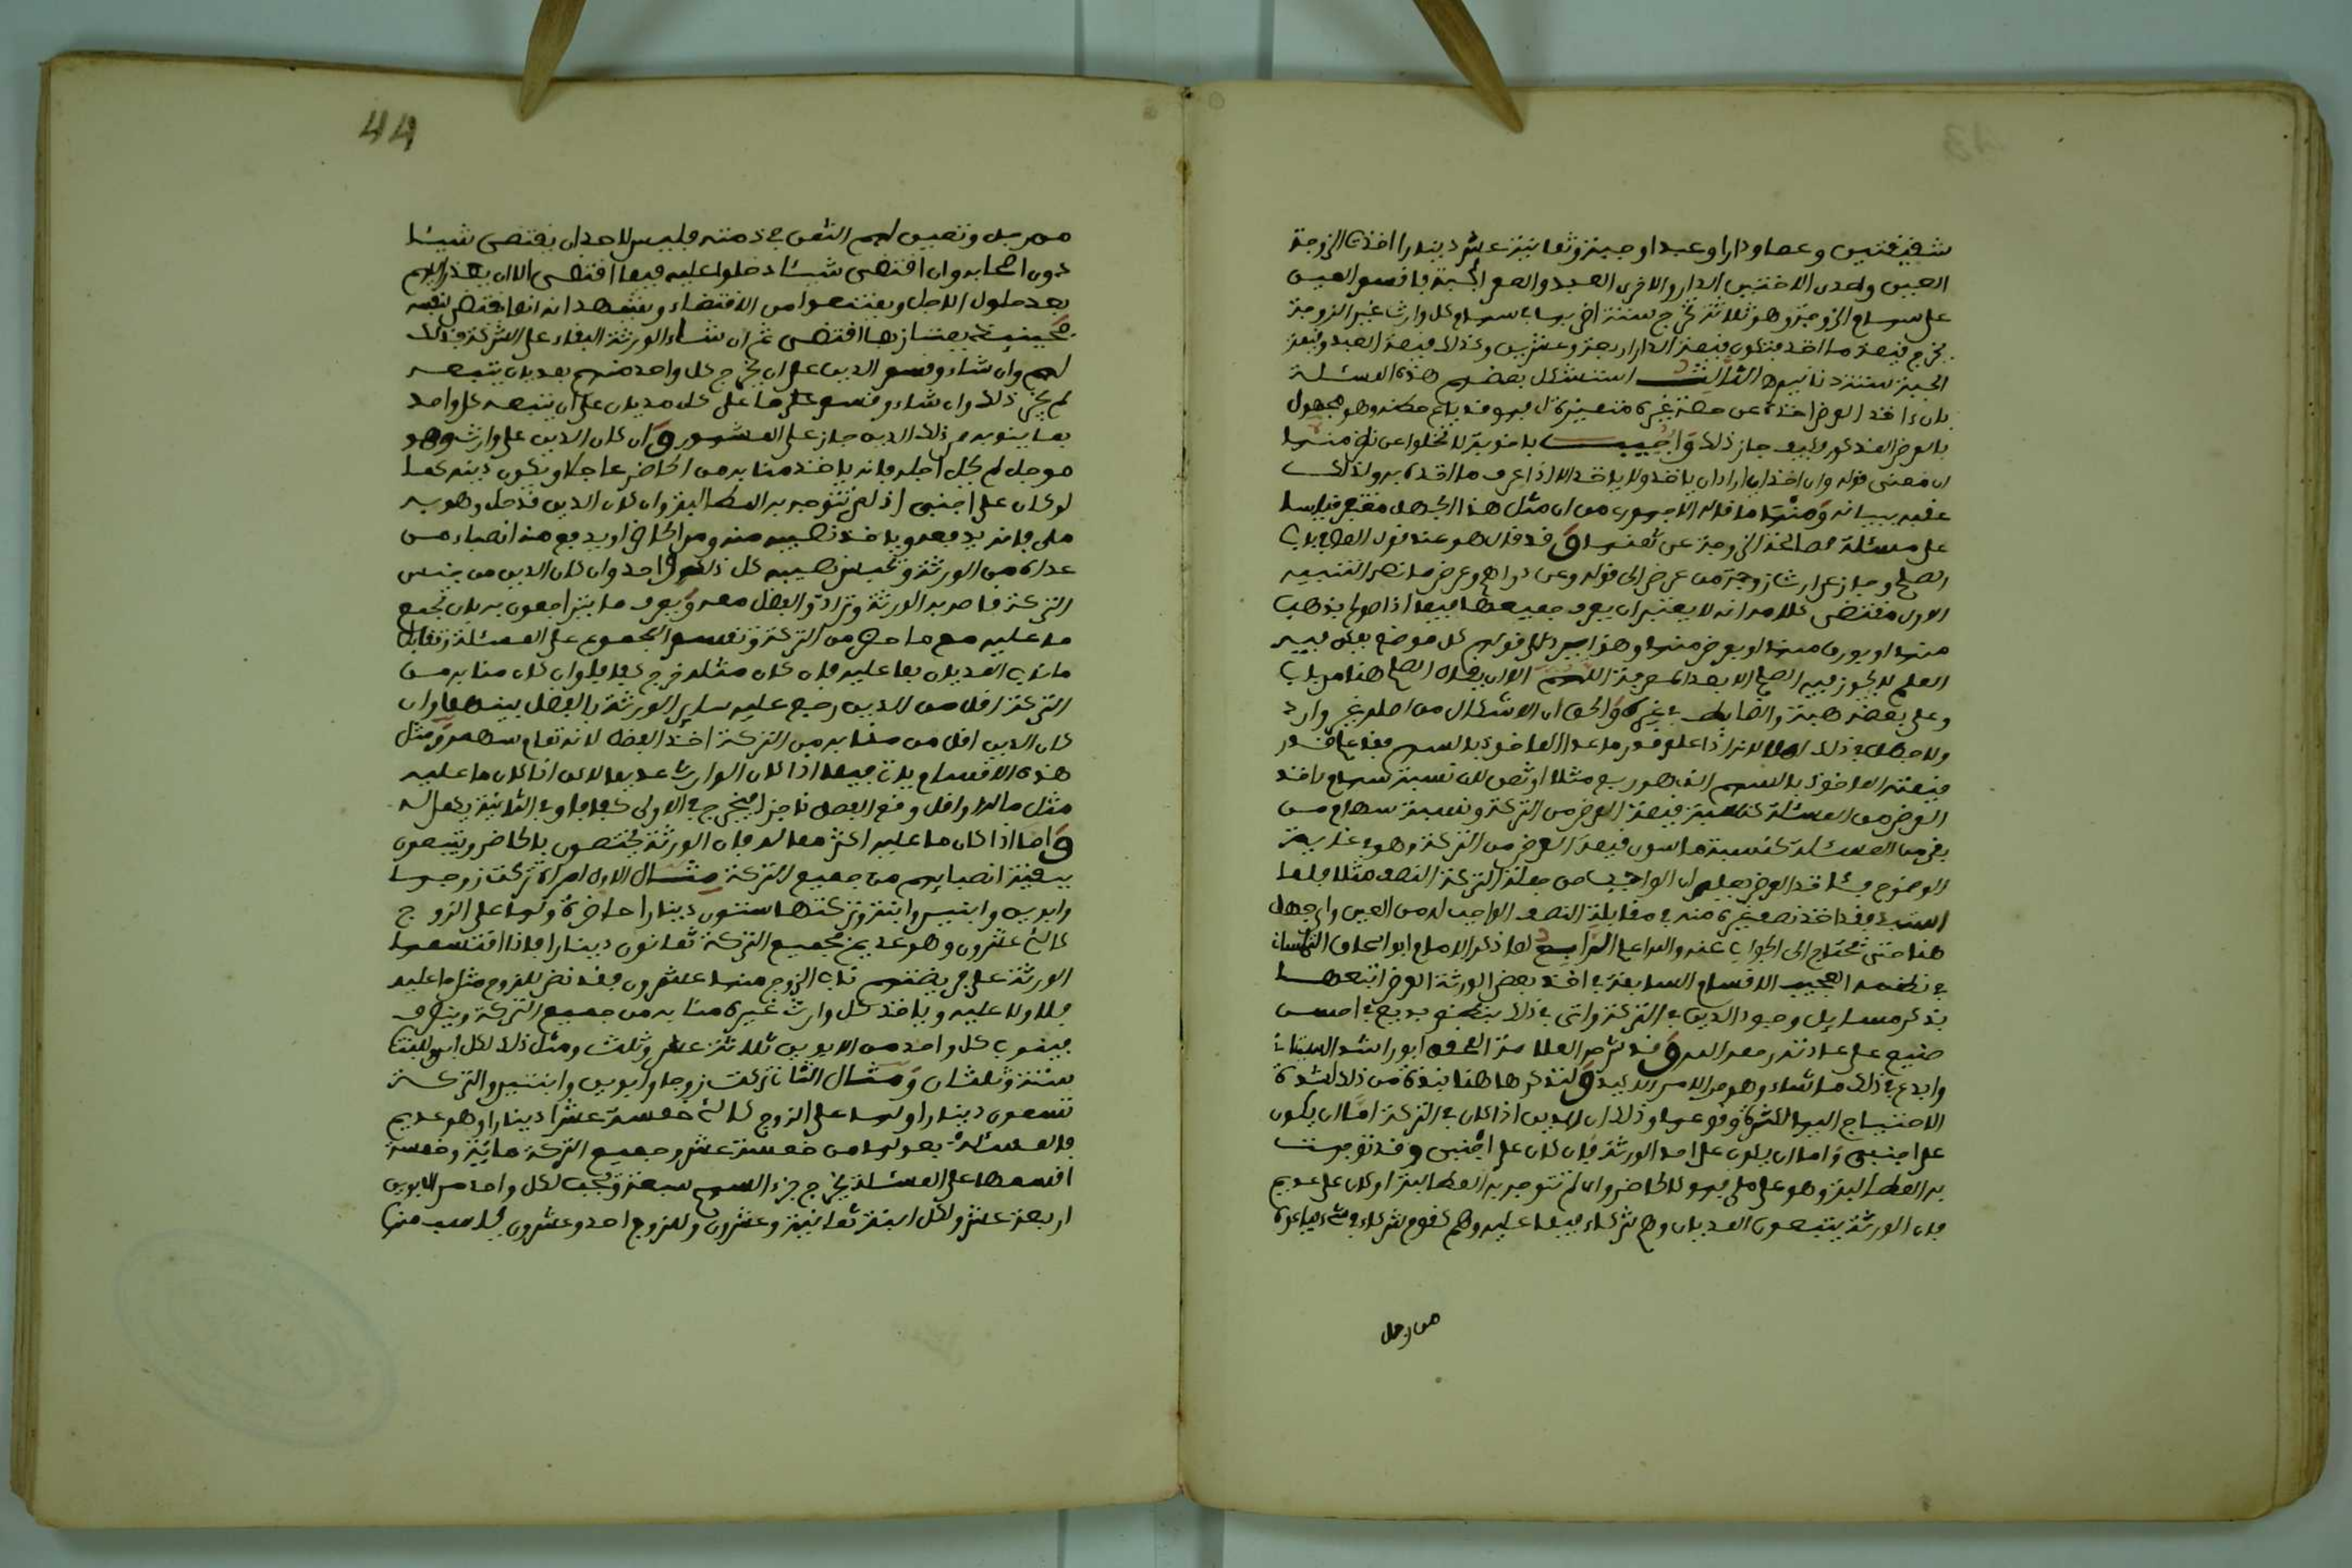 شقيقتين وعصا ودارا وعبدا وجبنة وثمانية عشر دينارا اخذت الزوجة
العين واحدى الاختين الدار والاخرى العبد والعم الجبة فاقسم العين
على سهام الزوجة وهو ثلاثة تخرج ستة اضربها في سهام كل وارث غير الزوجة
يخرج قيمة ما اخذ فتكون قيمة الدار اربعة وعشرين وكذلك قيمة العبد وقيمة
الجبة ستة دنانير الثالث استشكل بعضهم هذه المسئلة
بان اخذ العرض اخذه عن حصة غيره فهو قد باع حظه وهو مجهول
بالعرض المذكور فكيف جاز ذلك واجيب باجوبة لا تخلوا عن نظر منها
ان معنى قوله وان اخذ اي اراد ان ياخذ ولا ياخذ الا اذا عرف ما اخذه به ولذلك
عقبه ببيانه ومنها ما قاله الاجهوري من ان مثل هذا الجهل مغتفر قياسا
على مسئلة مصالحة الزوجة عن ثمنها وقد قال هو عند قول المص في باب
الصلح وجاز عن ارث زوجة من عرض الى قوله وعن دراهم وعرض ما نصه التنبيه
الاول مقتضى كلامه انه لا يعتبر ان يعرف جميعها فيما اذا صولح بذهب
منها او بورق منها او بعرض منها وهذا يرد على قولهم كل موضع يمكن فيه
العلم لا يجوز فيه الصلح الا بعد المعرفة اللهم الا ان يقال الصلح هنا من باب
وعلى بعضه هبة والحق ان الاشكال من اصله غير وارد
ولا جهل في ذلك اصلا لانه اذا علم قدر ما عدا الماخوذ بالسهم فقد علم قدر
قيمة الماخوذ بالسهم الذي هو ربع مثلا او ثمن لان نسبة سهام ءاخذ
العرض من المسئلة كنسبة قيمة العرض من التركة ونسبة سهام من
بقي من المسئلة كنسبة ما سوى قيمة العرض من التركة وهو في غاية
الوضوح فئاخذ العرض يعلم ان الواجب من جملة التركة النصف مثلا فلما
استبد فقد اخذ نصف غيره منه في مقابلة النصف الواجب له من العين واي جهل
هنا حتى يحتاج الى الجواب عنه والله اعلم الرابع لما ذكر الامام ابو اسحاق التلمساني
في نظمه العجيب الاقسام السابقة في اخذ بعض الورثة العرض اتبعها
بذكر مسايل وجود الدين في التركة واتى في ذلك بنظم بديع في احسن
صنيع على عادته رحمه الله وقد شرحه العلامة ابو راشد
وابدع في ذلك ما شاء وهو من الامر الاكيد ولنذكر ها هنا نبذة من ذلك لشدة
الاحتياج اليها لكثرة وقوعها وذلك ان الدين اذا كان في التركة اما ان يكون
على اجنبي واما ان يكون على احد الورثة فان كان على اجنبي وقد توجهت
به المطالبة وهو على ملي فهو كالحاضر وان لم تتوجه به المطالبة او كان على عديم
فان الورثة يتبعون المديان وهم شركاء فيما عليه وهم كقوم شركاء في شيء باعوه
من رجل
44
من رجل وتعين لهم الثمن في ذمته فليس لاحد ان يقتضي شيئا
دون اصحابه وان اقتضى شيئا دخلوا عليه فيما اقتضى الا ان يعذر اليهم
بعد حلول الاجل ويمتنعوا من الاقتضاء ويشهد انه انما اقتضى لنفسه
فحينئذ يمتاز بما اقتضى ثم ان شاء الورثة البقاء على الشركة فذلك
لهم وان شاءوا قسم الدين على ان يخرج كل واحد منهم بمديان يتبعه
لم يجز ذلك وان شاءوا قسم ما على كل مديان على ان يتبعه كل واحد
بما ينوبه من ذلك الدين جاز على المشهور وان كان الدين على وارث وهو
موجل لم يحل اجله فانه ياخذ منابه من الحاضر عاجلا ويكون دينه كما
لو كان على اجنبي اذ لم تتوجه به المطالبة وان كان الدين قد حل وهو به
ملي فانه يدفعه وياخذ نصيبه منه ومن الحاضر او يدفع منه انصباء من
عداه من الورثة ويحبس نصيبه كل ذلك واحد وان كان الدين من جنس
التركة قاصه به الورثة وتراد والفضل معه ويعرف ما يتراجعون به بان تجمع
ما عليه مع ما حضر من التركة وتقسم المجموع على المسئلة وتقابل
ما ناب المديان بما عليه فان كان مثله خرج كفافا وان كان منابه من
التركة اقل من الدين رجع عليه ساير الورثة بالفضل بينهما وان
كان الدين اقل من منابه من التركة اخذ الفضل لانه تمام سهمه ومثل
هذه الاقسام ياتي فيما اذا كان الوارث عديما لاكن اذا كان ما عليه
مثل ماله او اقل وقع الفصل ناجزا فيخرج في الاولى كفافا وفي الثانية يكمل له
واما اذا كان ما عليه اكثر مما له فان الورثة يختصون بالحاضر ويتبعون
ببقية انصبائهم من جميع التركة مثال الاول امراة تركت زوجها
وابوين وابنين وابنة وتركتها ستون دينارا حاضرة ولها على الزوج
كالئ عشرون وهو عديم فجميع التركة ثمانون دينارا فاذا اقتسمها
الورثة على فريضتهم ناب الزوج منها عشرون فقد نض للزوج مثل ما عليه
فلا له ولا عليه وياخذ كل وارث غيره منابه من جميع التركة
فينوب كل واحد من الابوين ثلاثة عشر وثلث ومثل ذلك لكل ابن وللبنت
ستة وثلثان ومثال الثاني تركت زوجا وابوين وابنتين والتركة
تسعون دينارا ولها على الزوج كالئ خمسة عشر دينارا وهو عديم
فالمسئلة بعولها من خمسة عشر وجميع التركة مائة وخمسة
اقسمها على المسئلة يخرج جزء السهم سبعة ويجب لكل واحد من الابوين
اربعة عشر ولكل ابنة ثمانية وعشرون وللزوج احد وعشرون يحاسب منها